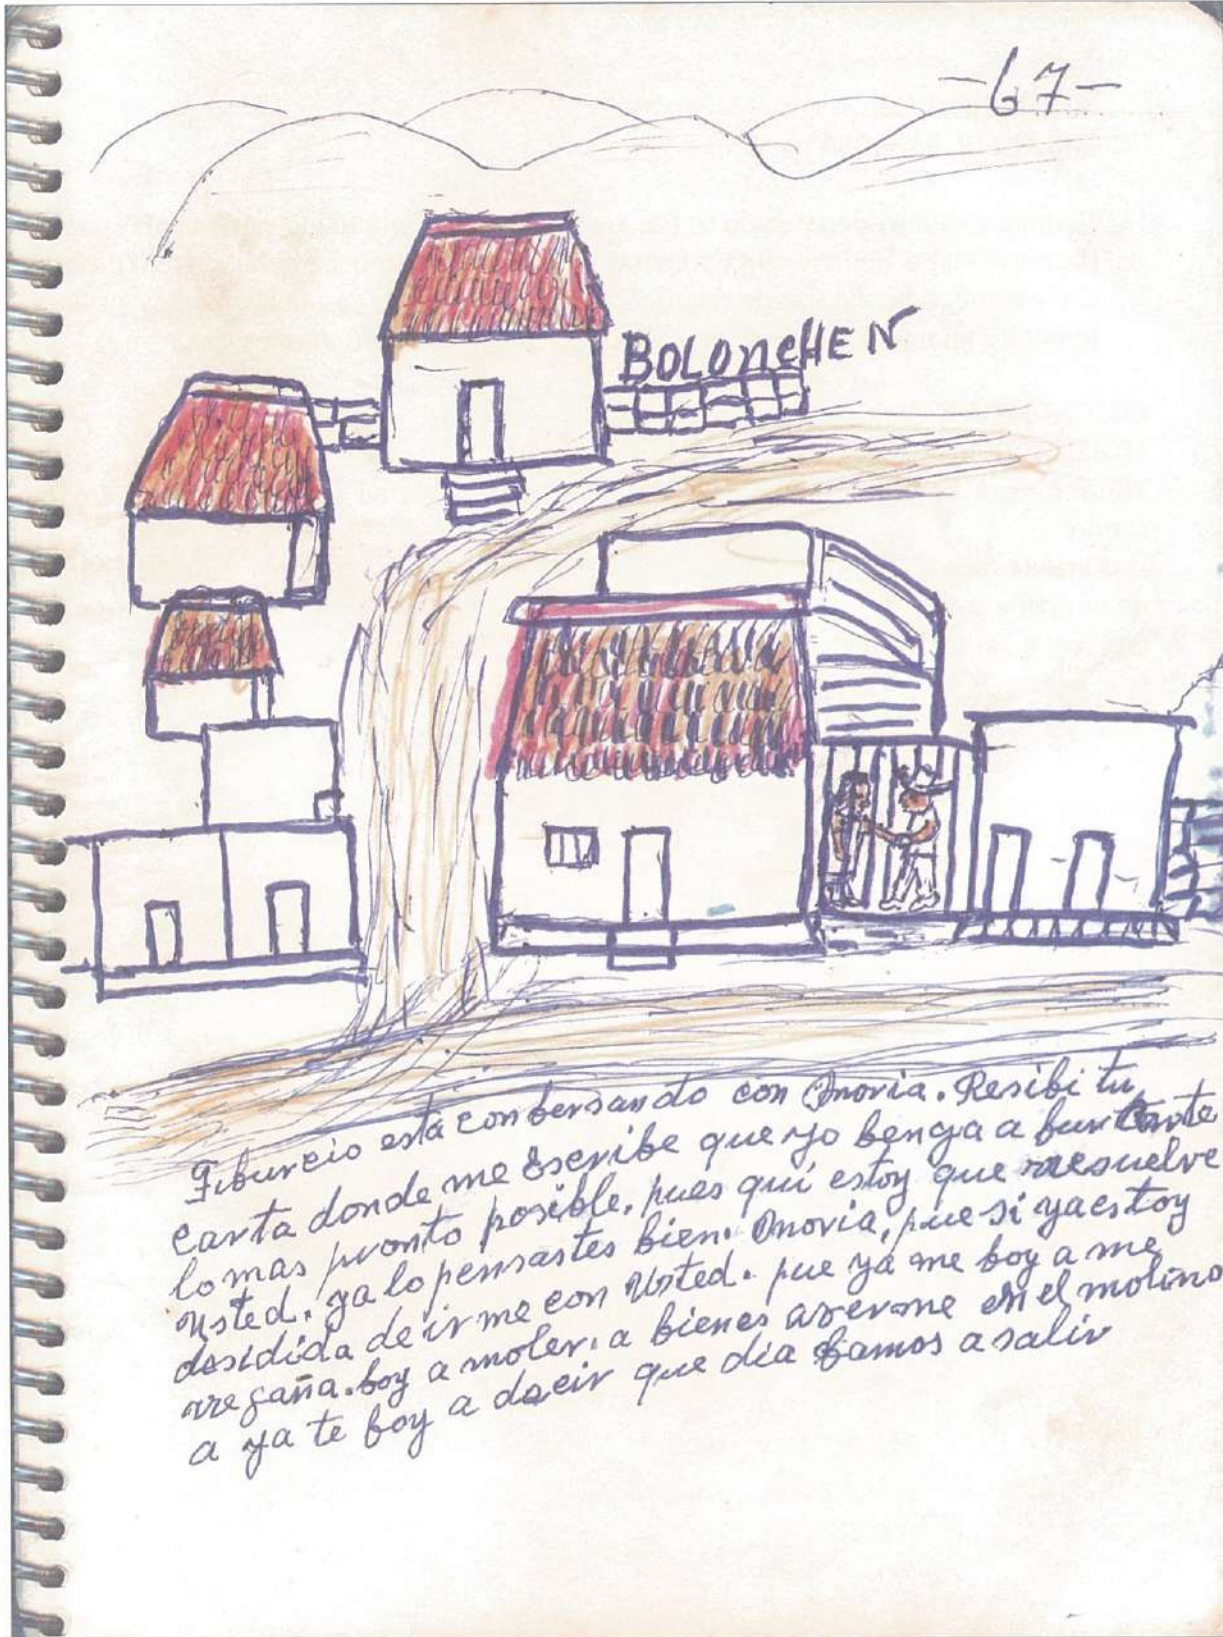 -67-
BOLONCHEN
Tiburcio está conbersando con Onoria. Resibi tu
carta donde me Escribe que yo benga a
lo mas pronto posible, pues qui estoy que resuelve
usted. ya lo pensastes bien. Onoria, pue si ya estoy
desidida de irme con Usted. pue ya me boy a me
rregaña. boy a moler. a bienes aserme en el molino
a ya te boy a decir que día bamos a salir